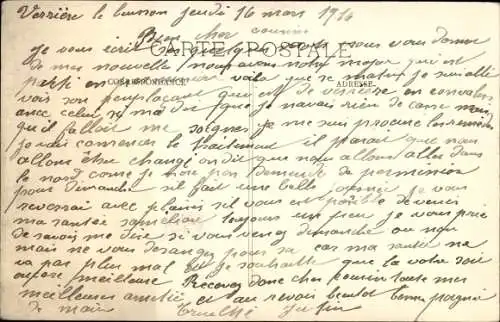 Verrière le buisson jeudi 16 mars 1916
Bien cher cousin
CARTE POSTALE
je vous écris ces quelques mots pour vous donner
de mes nouvelles nous avons notre major qui est
parti en voila que ce matin je suis allé
CORRESPONDANCE
ADRESSE
voir son remplaçant qui est de verrière en
avec celui si m'a dit que je navais rien de casse mais
qu'il fallait me soigner je me suis procuré les remèdes
je vais commencer le traitement il parait que nous
allons être changé on dit que nous allons aller dans
le nord comme je nore pas demandé de permission
pour dimanche si il fait une belle journée je vous
reverrais avec plaisir s'il vous est possible de venir
ma santée saméliore toujours un peu je vous prie
de savois me dire si vous venez dimanche ou non
mais ne vous derangez pour sa car ma santée ne
va pas plus mal et je souhaite que la votre soit
encore meilleure Recevez donc cher cousin toute mes
meilleures amitiés et au revoir bientot bonne poignée
de main